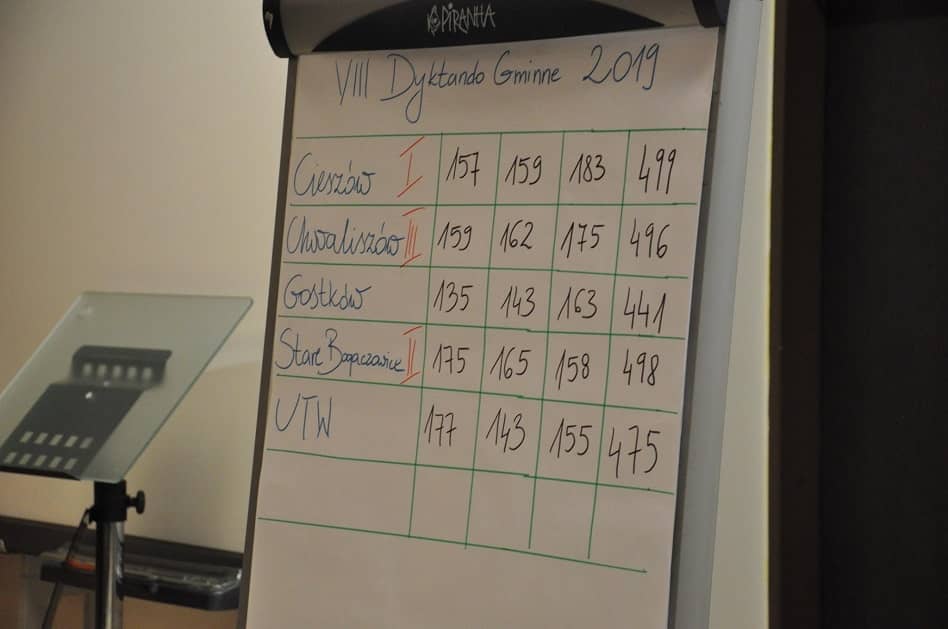 PIRANHA
VIII Dyktando Gminne 2019
Cieszów I 157 159 183 499
Chwaliszów III 159 162 175 496
Gostków 135 143 163 441
Stare Bogaczowice II 175 165 158 498
UTW 177 143 155 475